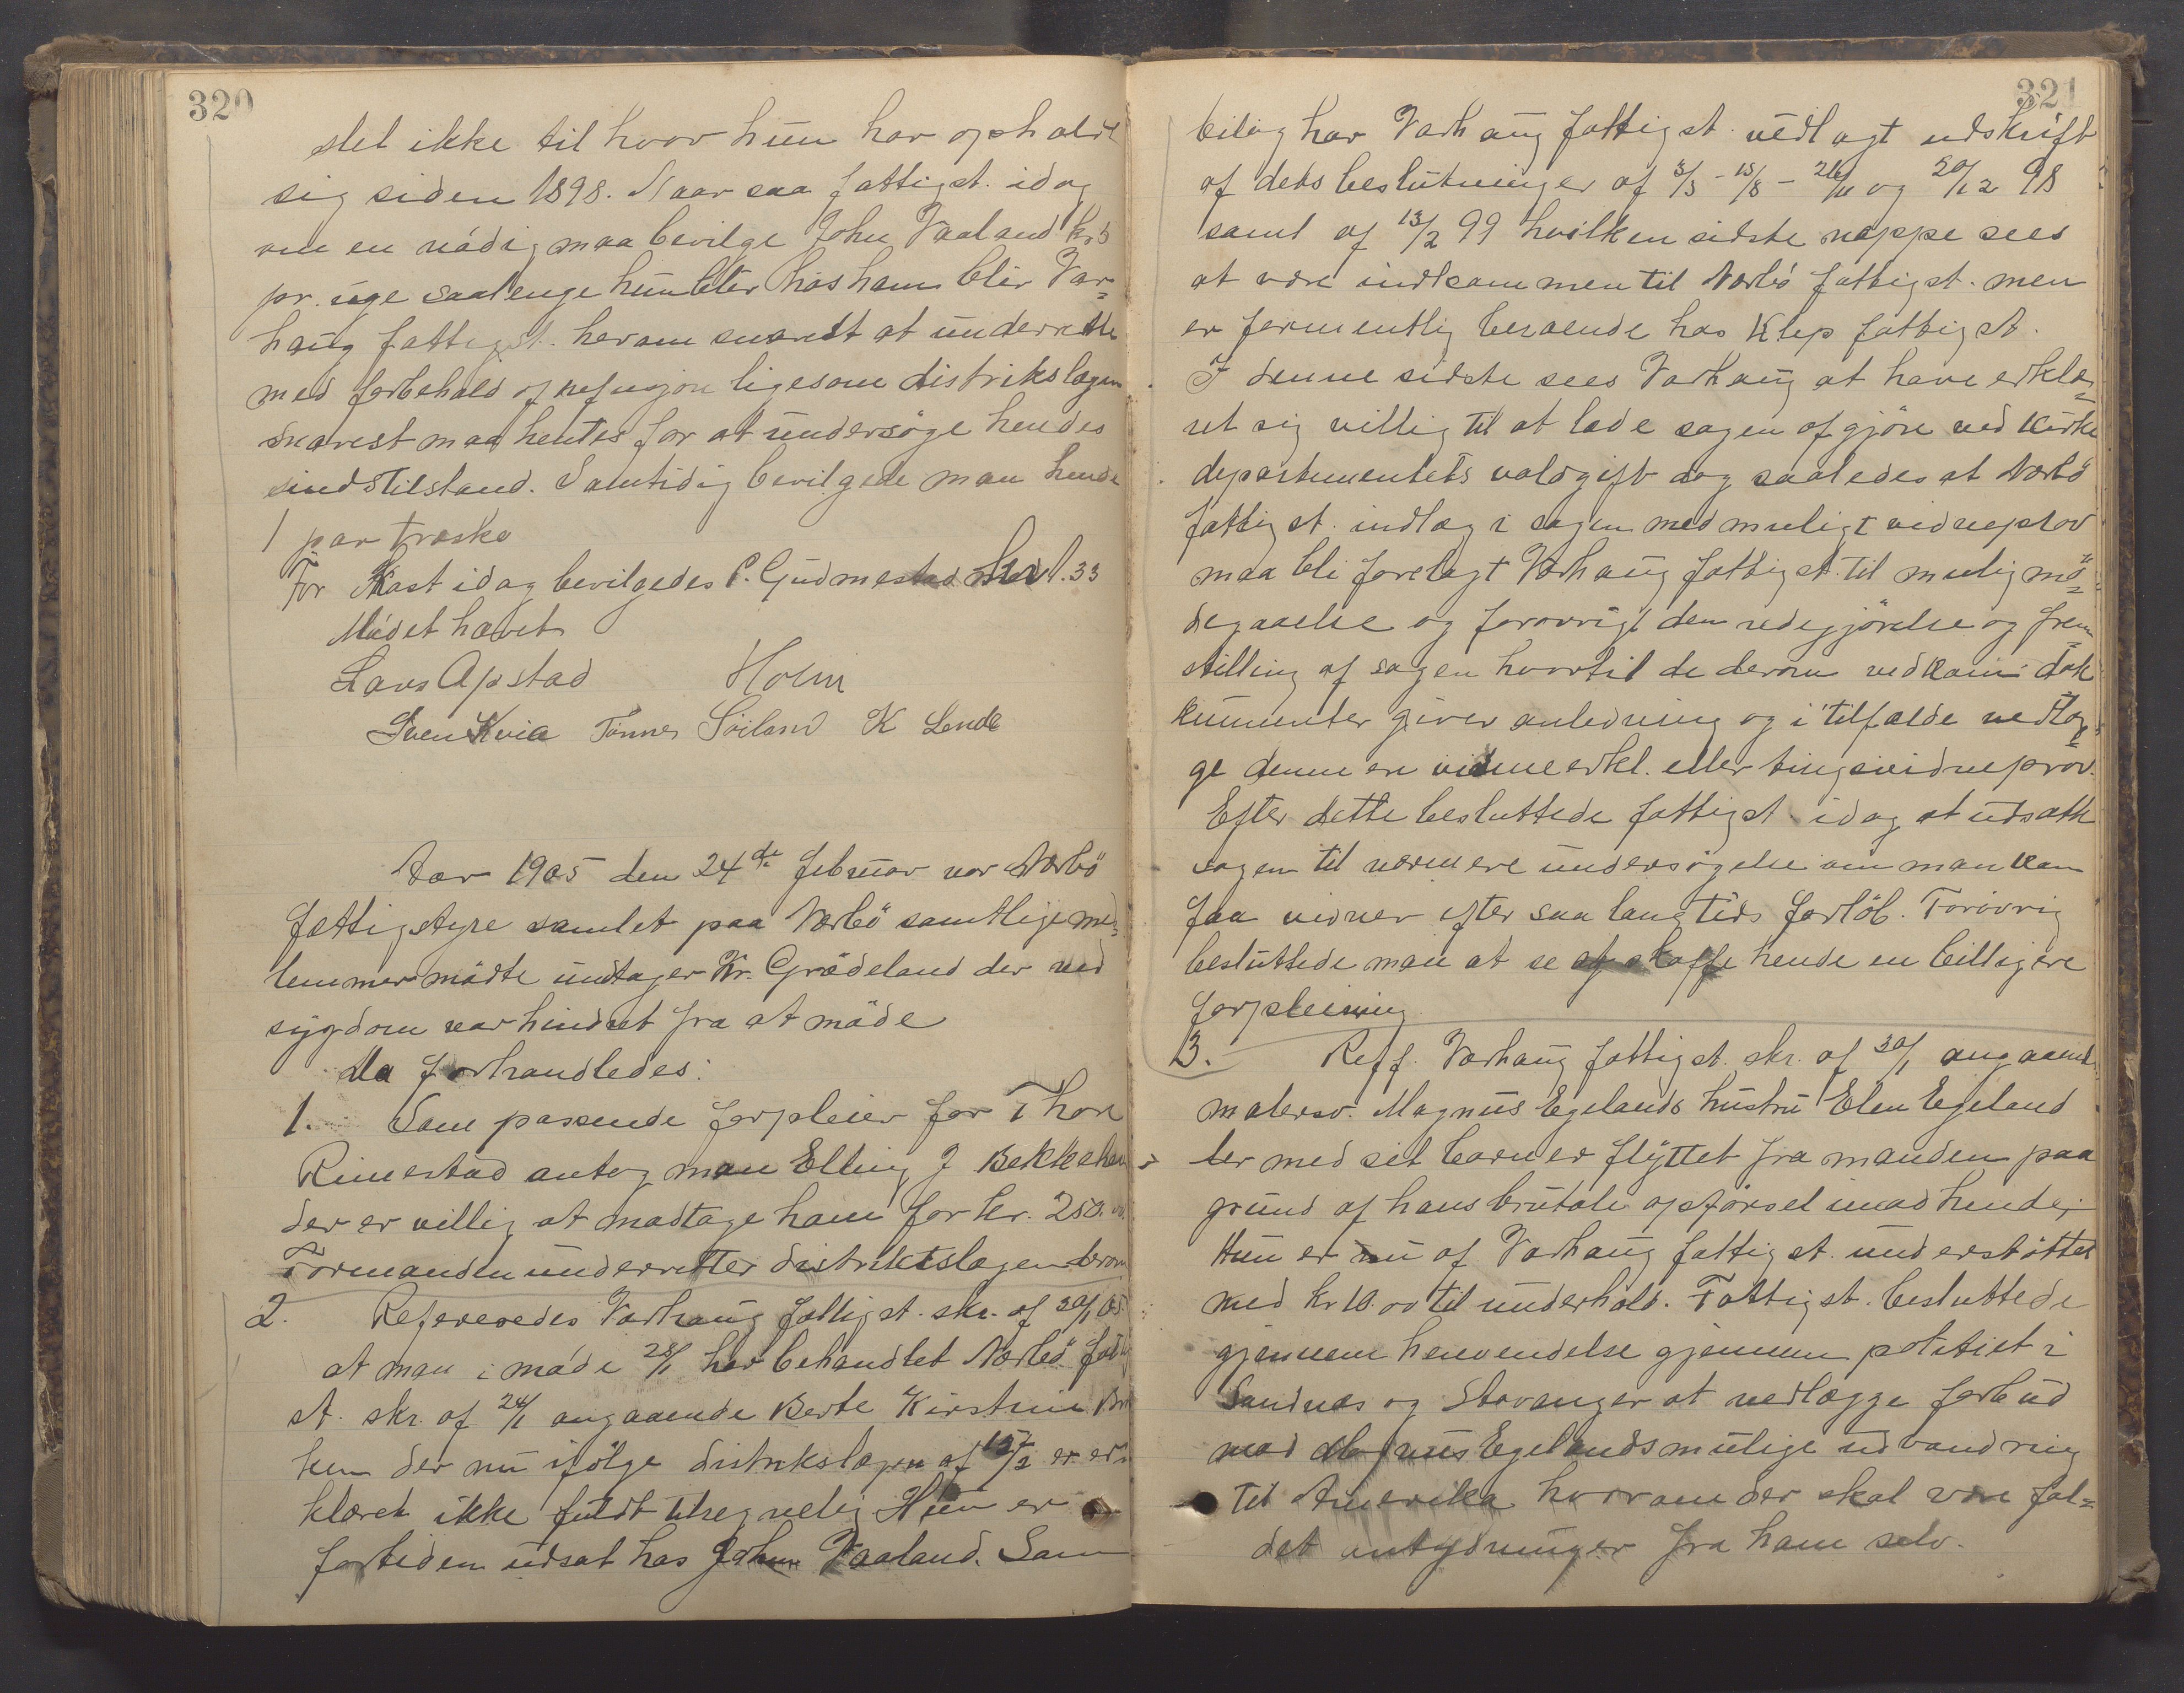 320
det ikke til hvor hun har opholdt
sig siden 1898. Naar saa fattigst. idag
om en nödig maa bevilge John Vaaland kr 5
pr. uge saalenge hun blir hos ham blir Var=
haug fattigst. herom snarest at underrette
med forbehold af refusjon ligesom distrikslægen
snarest maa hentes for at undersöge hendes
sindstilstand. Samtidig bevilgede man hende
1 par træsko
For Kost idag bevilgedes P. Gudmestad 33
Mödet hævet
Lars Apstad Holm
Sven Kvia Tönnes Söiland K Lende
Aar 1905 den 24de februar var Nærbö
fattigstyre samlet paa Nærbö samtlige med=
lemmer mödte undtagen Kr. Grödeland der ved
sygdom var hindret fra at möde
Da forhandledes:
1. Som passende forpleier for Thore
Rimestad antog man Elling J Bekkeheien
der er villig at modtage ham for kr. 250.00
Formanden underretter distriktslægen derom
2. Refereredes Varhaug fattigst. skr. af 30/1 05
at man i möde 28/1 har behandlet Nærbö fattig
st. skr. af 24/1 angaaende Berte Kirstine
der nu ifölge distrikslægen af 15/2 er er=
klæret ikke fuldt tilregnelig Hun er
fortiden udsat hos John Vaaland. Som
321
bilag har Varhaug fattigst. vedlagt udskrift
af dets beslutninger af 3/3 - 15/8 - 26/11 og 20/12 98
samt af 13/2 99 hvilken sidste næppe sees
at være indkommen til Nærbö fattigst. men
er formentlig beroende hos Klep fattigst.
I denne sidste sees Varhaug at have erklæ=
ret sig villig til at lade sagen afgjöre ved Kirke
departementets voldgift dog saaledes at Nærbö
fattigst. indlæg i sagen med muligt vidneprov
maa bli forelagt Varhaug fattigst. til mulig mö=
degaaelse og forövrigt den redegjörelse og frem
stilling af sagen hvortil de derom vedkom. dok
kumenter giver anledning og i tilfælde vedlæg=
ge denne en vidneerkl. eller tingsvidneprov.
Efter dette besluttede fattigst idag at udsætte
sagen til nærmere undersögelse om man kan
faa vidner efter saa lang tids forlöb. Forövrig
besluttede man at se at skaffe hende en billigere
forpleining
3. Reff. Varhaug fattigst. skr. af 30/1 angaaende
malersv. Magnus Egelands hustru Elen Egeland
der med sit barn er flyttet fra manden paa
grund af hans brutale opförsel imod hende.
Hun er nu af Varhaug fattigst. understöttet
med kr 10.00 til underhold. Fattigst. besluttede
gjennem henvendelse gjennem politiet i
Sandnæs og Stavanger at nedlægge forbud
mod Magnus Egelands mulige udvandring
til Amerika hvorom der skal være fal=
det antydninger fra ham selv.